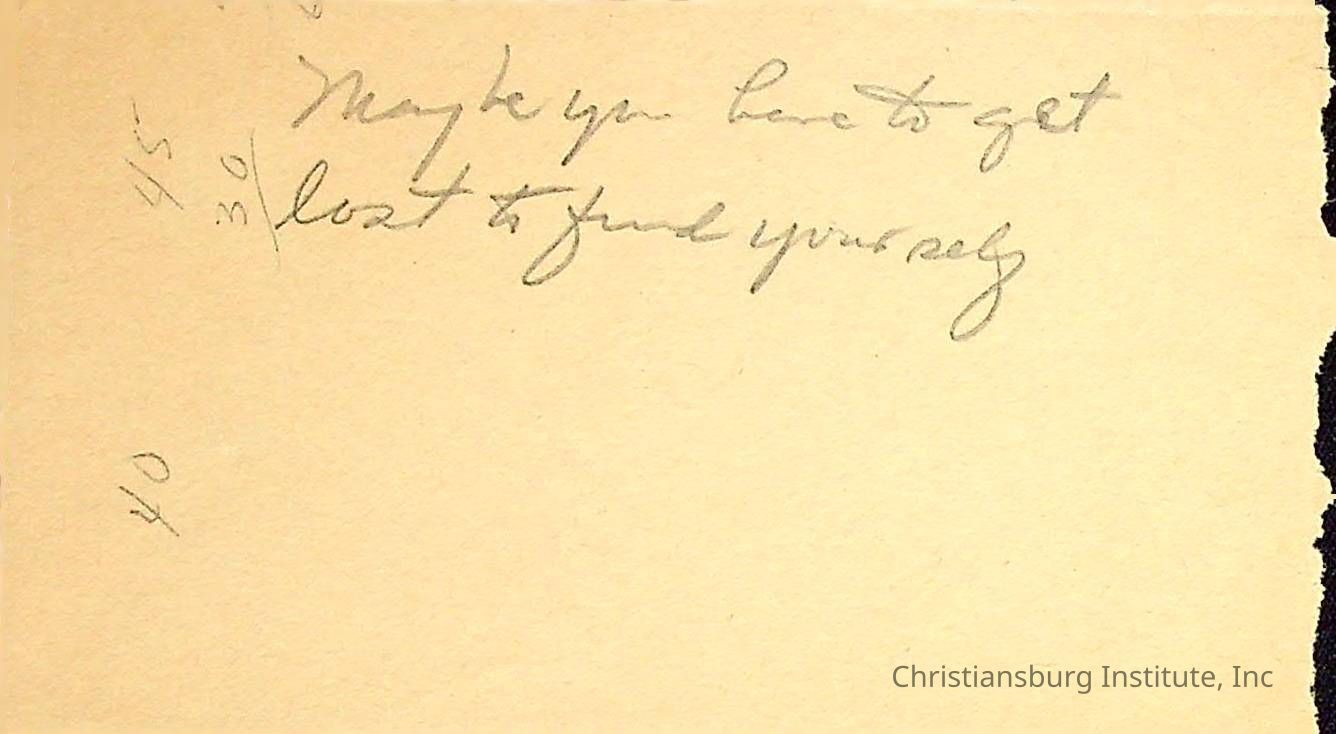 Maybe you have to get
lost to find yourself
45
30
40
Christiansburg Institute, Inc